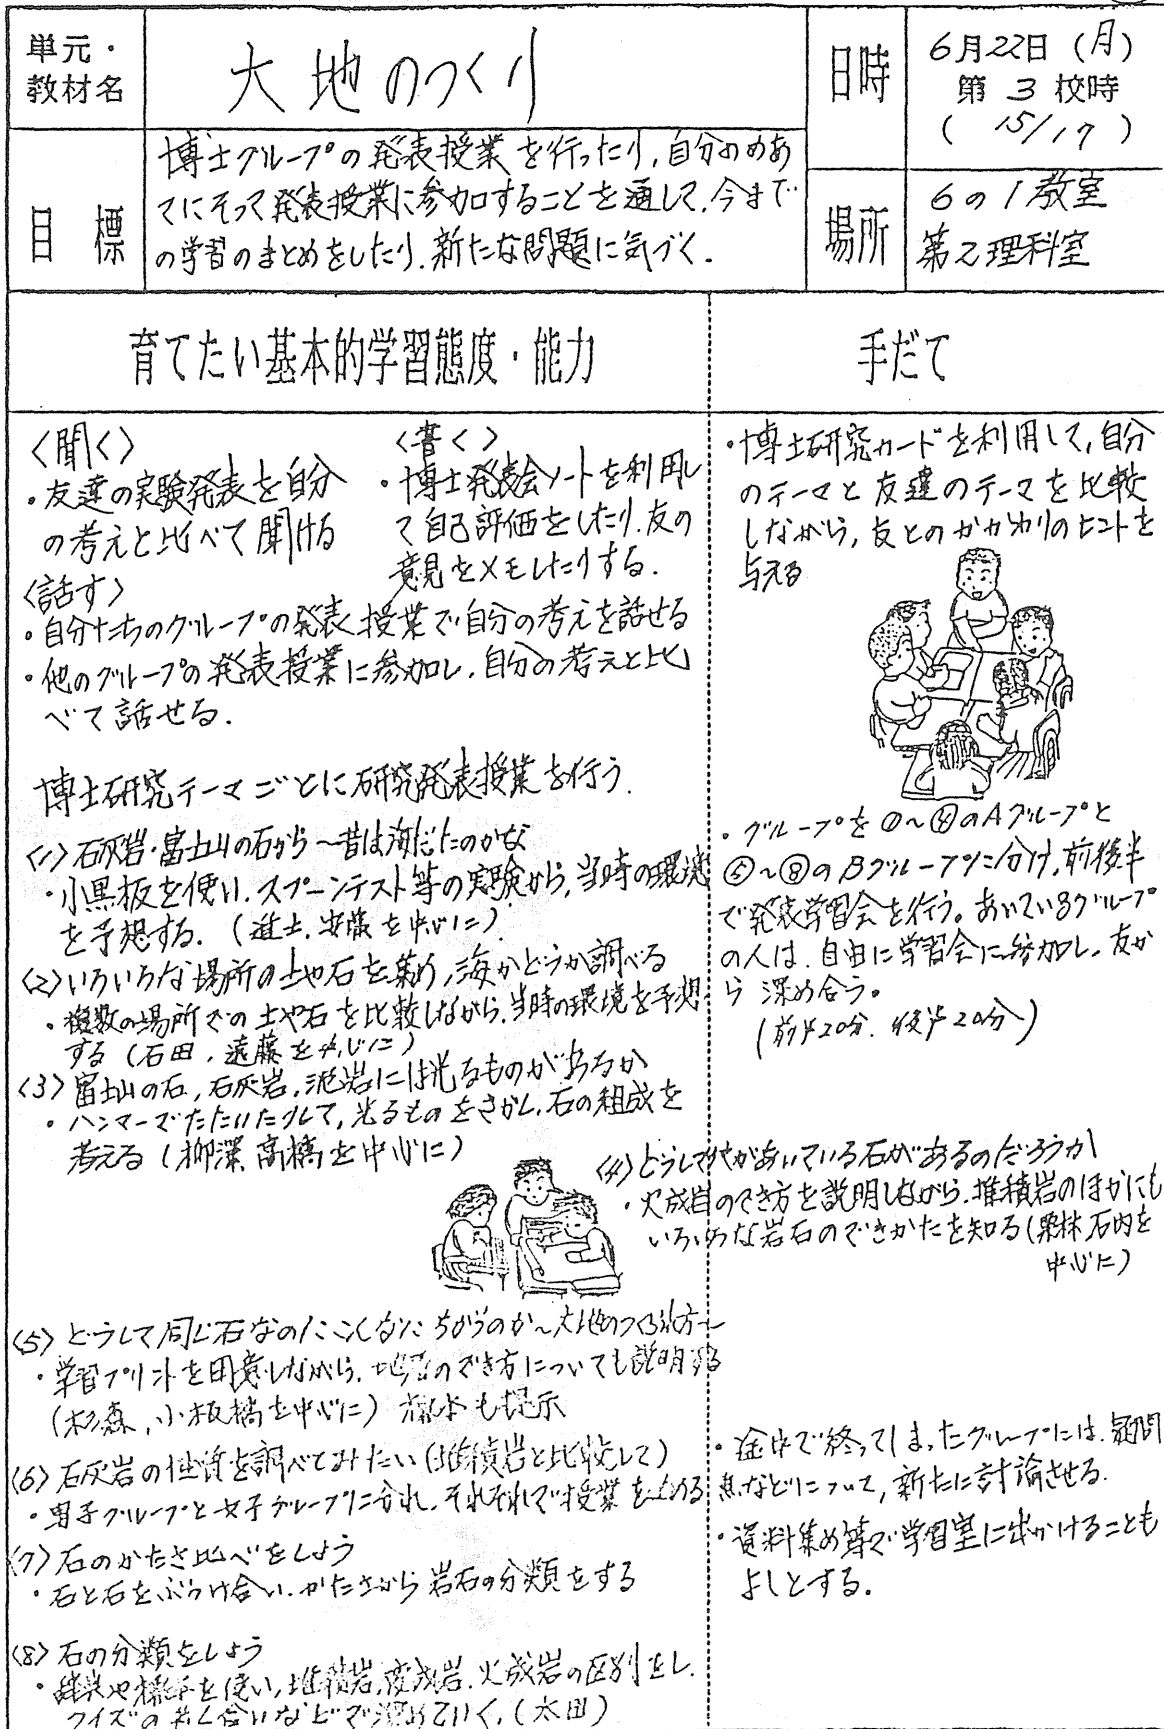 単元・
教材名
大地のつくり
日時
6月22日(月)
第3校時
(15/17)
目標
博士グループの発表授業を行ったり,自分のめあ
てにそって発表授業に参加することを通して,今まで
の学習のまとめをしたり,新たな問題に気づく.
場所
6の1教室
第2理科室
育てたい基本的学習態度・能力
手だて
〈聞く〉
・友達の実験発表を自分
の考えと比べて聞ける
〈書く〉
・博士発表会ノートを利用し
て自己評価をしたり,友の
意見をメモしたりする.
〈話す〉
・自分たちのグループの発表授業で自分の考えを話せる
・他のグループの発表授業に参加し,自分の考えと比
べて話せる.
博士研究テーマごとに研究発表授業を行う.
〈1〉石灰岩・富士山の石から〜昔は海だったのかな
・小黒板を使い,スプーンテスト等の実験から,当時の環境
を予想する.(進士,安藤を中心に)
〈2〉いろいろな場所の土や石を集め,海かどうか調べる
・複数の場所での土や石を比較しながら,当時の環境を予想
する(石田,遠藤を中心に)
〈3〉富士山の石,石灰岩,泥岩には光るものがあるか
・ハンマーでたたいたりして,光るものをさがし,石の組成を
考える(柳澤,高橋を中心に)
〈4〉どうして穴があいている石があるのだろうか
・火成岩のでき方を説明しながら,堆積岩のほかにも
いろいろな岩石のできかたを知る(栗林,石内を
中心に)
〈5〉どうして同じ石なのにこんなにちがうのか〜大地のつくられ方〜
・学習プリントを用意しながら,のでき方についても説明する
(杉森,小板橋を中心に) も提示
〈6〉石灰岩の性質を調べてみたい(堆積岩と比較して)
・男子グループと女子グループに分れ,それぞれで授業を進める
〈7〉石のかたさ比べをしよう
・石と石をぶつけ合い,かたさから岩石の分類をする
〈8〉石の分類をしよう
・を使い,堆積岩,変成岩,火成岩の区別をし,
クイズのなどで深めていく,(太田)
・博士研究カードを利用して,自分
のテーマと友達のテーマを比較
しながら,友とのかかわりのヒントを
与える
・グループを①〜④のAグループと
⑤〜⑧のBグループに分け,前後半
で発表学習会を行う。あいているグループ
の人は,自由に学習会に参加し,友か
ら深め合う。
(前半20分,後半20分)
・途中で終ってしまったグループには,疑問
点などについて,新たに討論させる.
・資料集め等で学習室に出かけることも
よしとする.